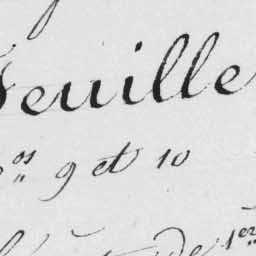 Feuille
nos 9 et 10
de 1er